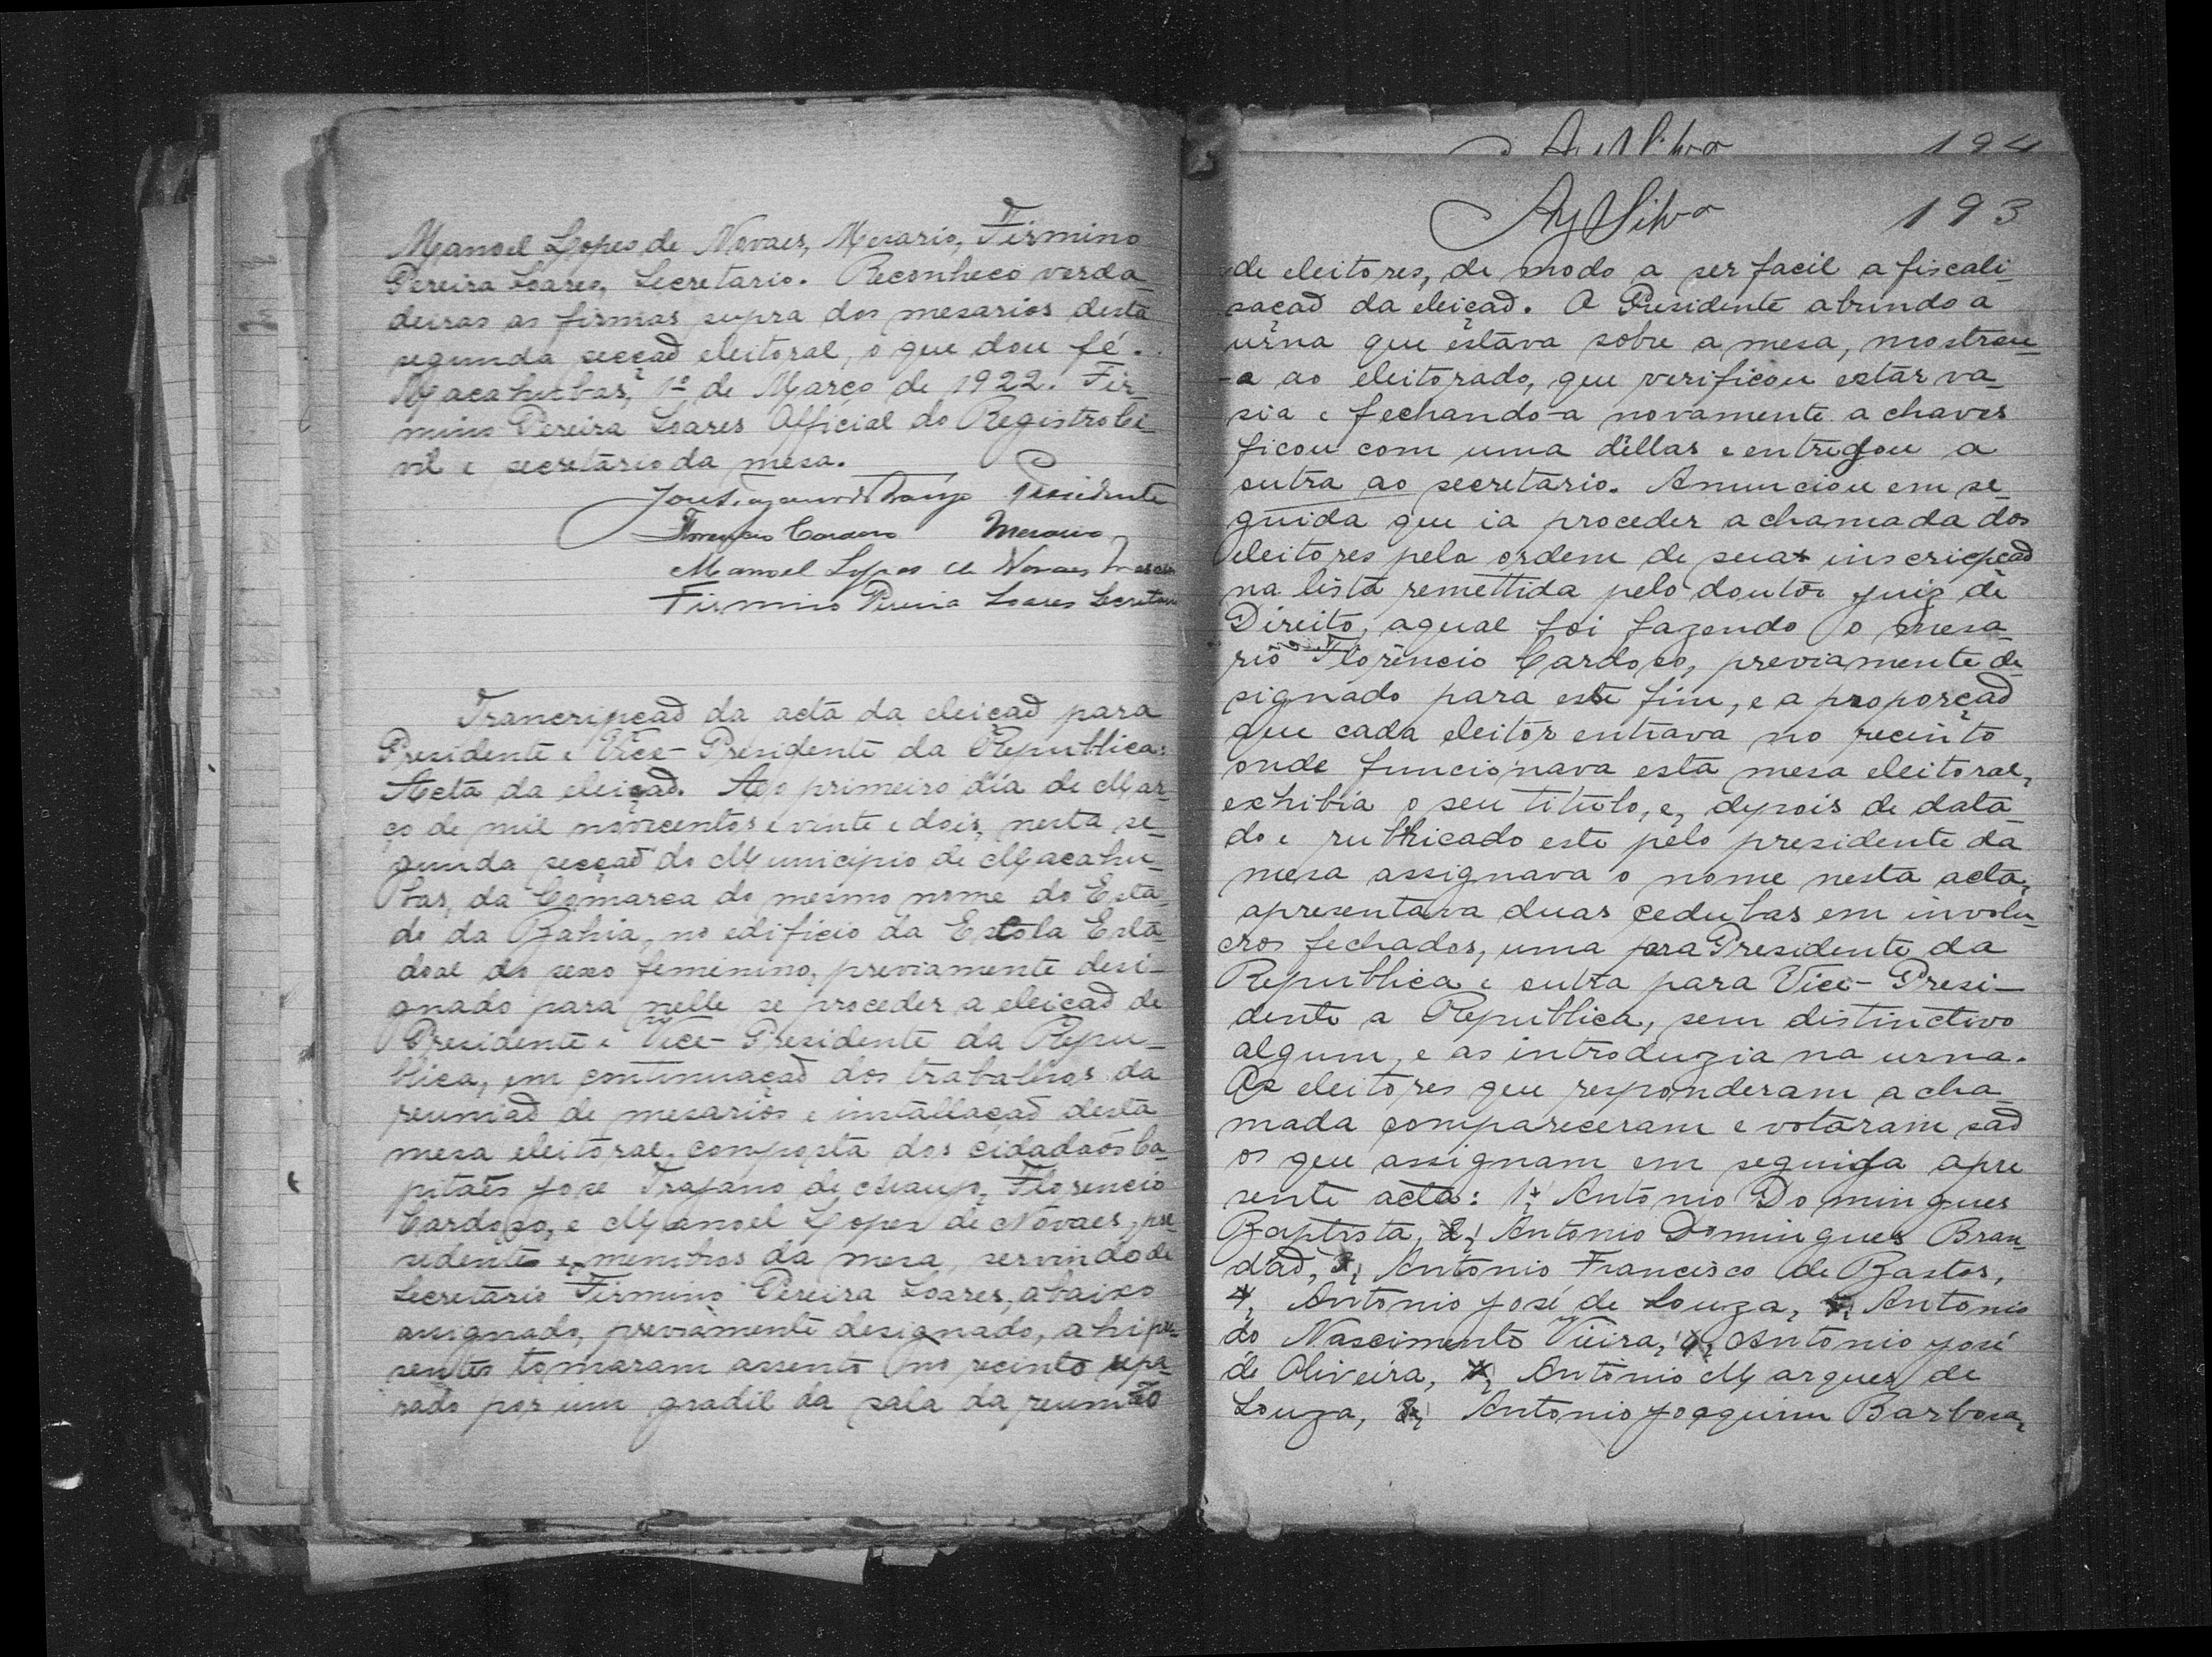 Manoel Lopes de Novaes, Mesario, Firmino
Pereira Soares, Secretario. Reconheco verda_
deiras as firmas supra dos mesarios desta
segunda secçaõ eleitoral, o que dou fé.
Macahubas, 1º de Março de 1922. Fir_
mino Pereira Soares Official do Registro Ci_
vil e secretario da mesa.
Presidente
Florencio Cardoso Mesario
Manoel Lopes de Novaes Mesario
Firmino Pereira Soares Secretario
Trancripçaõ da acta da eleiçaõ para
Presidente e Vice-Presidente da Republica:
Acta da eleiçaõ. Ao primeiro dia de Mar_
ço de mil novecentos e vinte e dois, nesta se_
gunda secçaõ do Municipio de Macahu_
bas, da Comarca do mesmo nome do Esta_
do da Bahia, no edificio da Escola Esta_
doal do sexo feminino, previamente desi_
gnado para nelle se proceder a eleiçaõ de
Presidente e Vice-Presidente da Repu_
blica, em continuaçaõ dos trabalhos da
reuniaõ de mesarios e installaçaõ desta
mesa eleitoral, composta dos cidadaõs Ca_
pitaẽs José Trajano de Araujo, Florencio
Cardoso, e Manoel Lopes de Novaes, pre_
sidente e membros da mesa, servindo de
Secretario Firmino Pereira Soares, abaixo
assignado, previamente designado, ahi pre_
sentes tomaram assento no recinto sepa_
rado por um gradil da sala da reunião
194
AySilva 193
de eleitores, de modo a ser facil a fiscali_
saçaõ da eleiçaõ. O Presidente abrindo a
urna que estava sobre a mesa, mostrou_
-a ao eleitorado, que verificou estar va_
sia e fechando-a novamente a chaves
ficou com uma dellas e entregou a
outra ao secretario. Anunciou em se_
guida que ia proceder a chamada dos
eleitores pela ordem de suas inscripçaõ
na lista remettida pelo doutor juiz de
Direito, a qual foi fazendo o mesa_
rio Florencio Cardoso, previamente de_
signado para este fim, e a proporçaõ
que cada eleitor entrava no recinto
onde funcionava esta mesa eleitoral,
exhibia o seu titulo, e, depois de data_
do e rubricado este pelo presidente da
mesa assignava o nome nesta acta,
apresentava duas cedulas em involu_
cros fechados, uma para Presidente da
Republica e outra para Vice-Presi_
dente a Republica, sem distinctivo
algum, e as introduzia na urna.
Os eleitores que responderam a cha_
mada compareceram e votaram saõ
os que assignam em seguida apre
sente acta: 1º, Antonio Domingues
Baptista, 2, Antonio Domingues Bran_
daõ, 3, Antonio Francisco de Bastos,
4, Antonio José de Souza, 5, Antonio
do Nascimento Vieira, 6, Antonio José
de Oliveira, 7, Antonio Marques de
Souza, 8, Antonio Joaquim Barbosa,